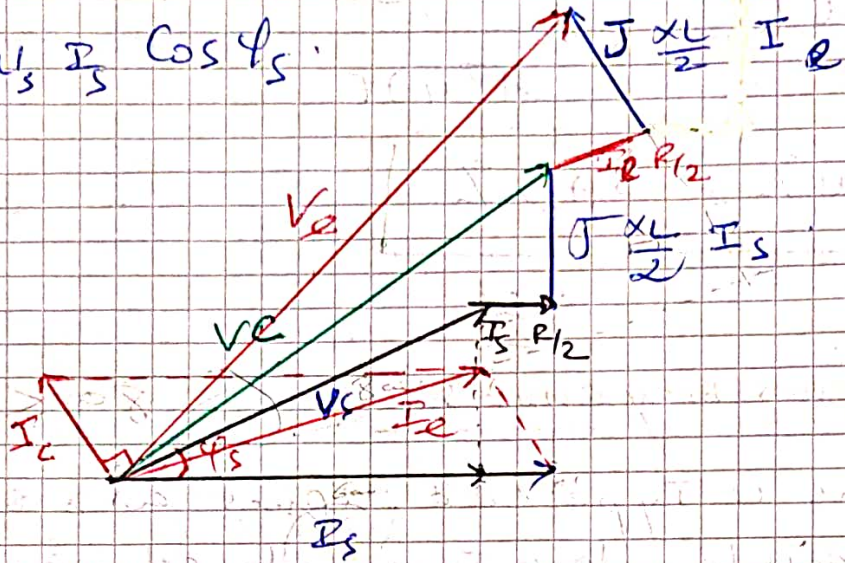 Us Is Cos φs.
J XL/2 Ie
Ie R/2
Ve
J XL/2 Is
Vc
Is R/2
Vs
Ie
Ic
φs
Is